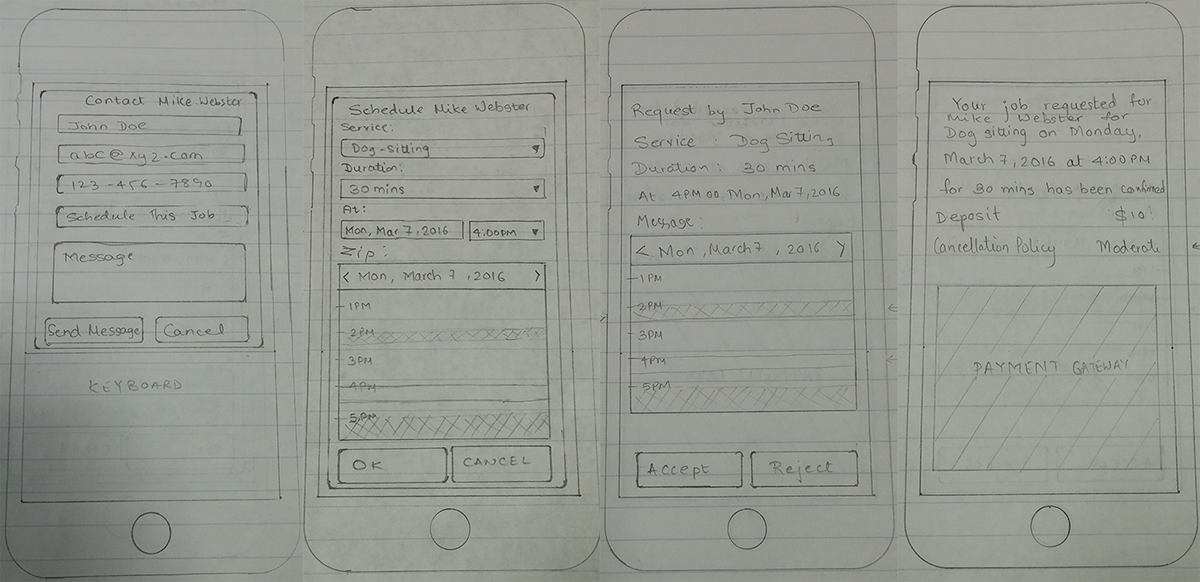 Contact Mike Webster
John Doe
abc@xyz.com
123-456-7890
Schedule This Job
Message
Send Message
Cancel
KEYBOARD
Schedule Mike Webster
Service:
Dog-Sitting
Duration:
30 mins
At:
Mon, Mar 7, 2016
4:00PM
Zip:
< Mon, March 7, 2016 >
1PM
2PM
3PM
4PM
5PM
OK
CANCEL
Request by John Doe
Service : Dog Sitting
Duration : 30 mins
At 4PM 00, Mon, Mar 7, 2016
Message:
< Mon, March 7, 2016 >
1PM
2PM
3PM
4PM
5PM
Accept
Reject
Your job requested for
Mike Webster for
Dog sitting on Monday,
March 7, 2016 at 4:00PM
for 30 mins has been confirmed
Deposit $10
Cancellation Policy Moderate
PAYMENT GATEWAY